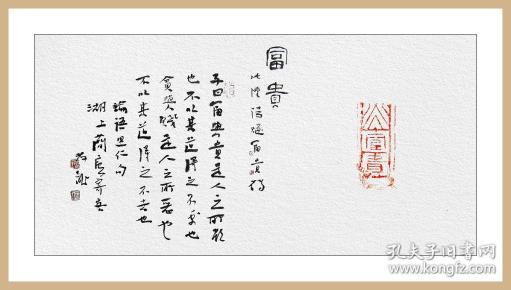 大富貴
富貴
子曰富與貴是人之所欲
也不以其道得之不處也
貧與賤是人之所惡也
不以其道得之不去也
論語里仁句
湖上
孔夫子旧书网
book.kongfz.com